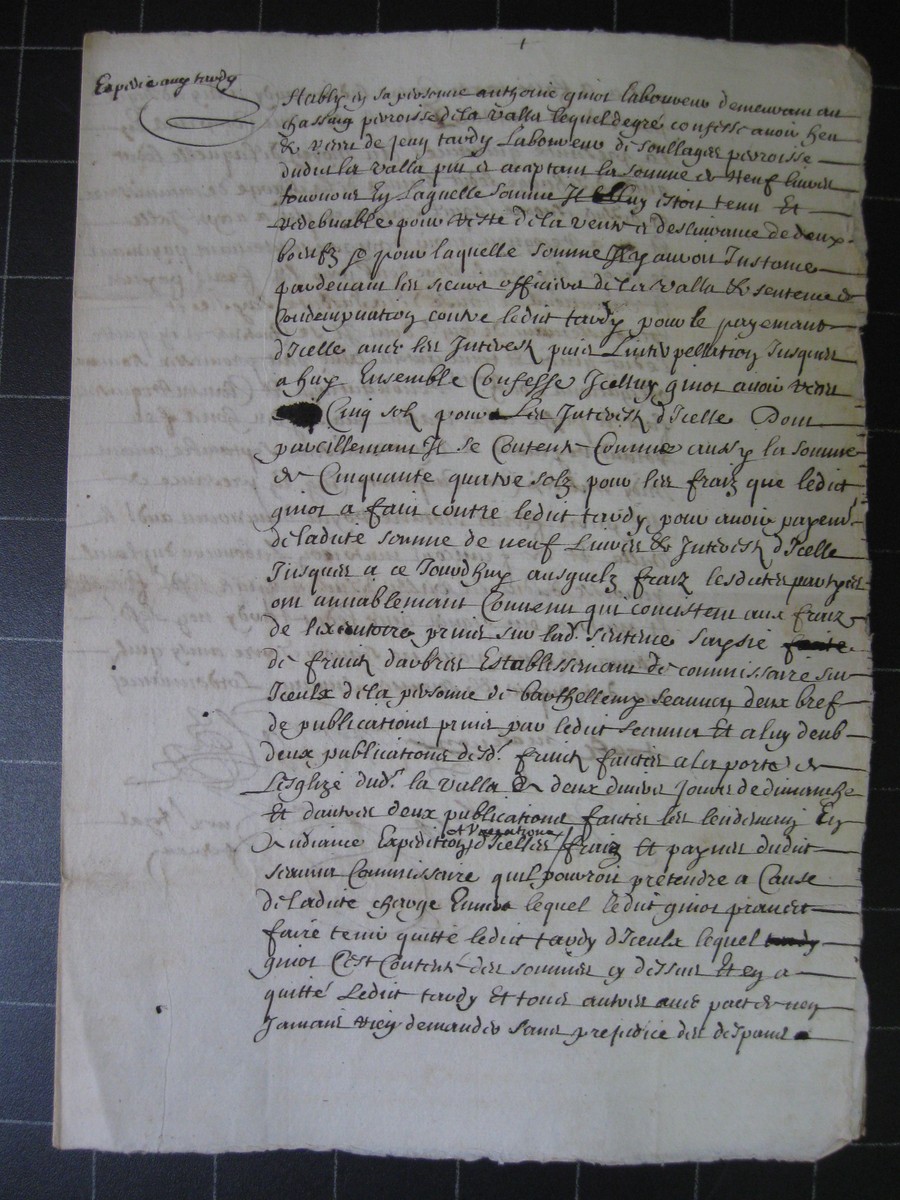 Expedie aud tardy
Estably en sa personne anthoine guiot laboureur demeurant au
chassing perroisse de la valla lequel de gré confesse avoir heu
& receu de jean tardy laboureur de soullages perroisse
dudict la valla pnt & aceptant la somme de neuf livres
tournois En laquelle somme Il luy estoit tenu Et
redebvable pour reste de la vente & deslivrance de deux
boeufz & pour laquelle somme Il y auroit Instance
pardevant les sieurs officiers de la valla & sentence de
Condempnation contre ledict tardy pour le payement
d'Icelle avec les Interestz puis L'interpellation Jusques
a huy Ensemble Confesse Icelluy guiot avoir receu
Cinq solz pour Les Interestz d'Icelle Dont
pareillement Il se Contente Comme aussy la somme
de Cinquante quatre solz pour les fraiz que ledict
guiot a faict contre ledict tardy pour avoir payemt
de ladite somme de neuf Livres & Interestz d'Icelle
Jusques a ce Jourdhuy ausquelz fraiz lesdites partyes
ont amiablement Convenu qui concistent aux fraiz
de lexecutoire prinse sur lad. sentence saysie faite
de fruictz d'arbres Establissement de commissaire sur
Iceulx de la personne de barthellemy Seauna deux bref
de publications prinses par ledict Seauna Et a luy deub
deux publications desd. fruictz faictes a la porte de
Lesglize dud. la valla & deux divers jours de dimanche
Et d'autres deux publications faictes les lendemain En
Audiance Expeditions et Vaccations d'Icelles fraiz Et paynes dudict
Seauna Commissaire quil pourroit pretendre a Cause
de ladite charge Envers lequel ledict guiot promet
faire tenir quitte ledict tardy d'Iceulx lequel tardy
guiot C'est Contenté des sommes cy dessus Et en a
quitté Ledict tardy Et tous autres avec pact de nen
Jamais rien demander sans prejudice des despans